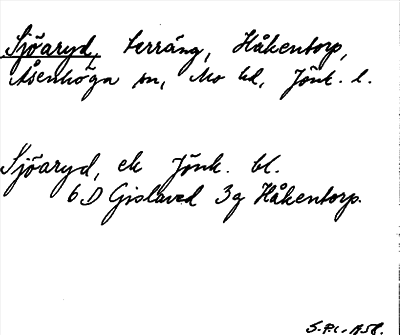 Sjöaryd, terräng, Håkentorp,
Åsenhöga sn, Mo hd, Jönk. l.
Sjöaryd, ek Jönk. bl.
6 D Gislaved 3g Håkentorp.